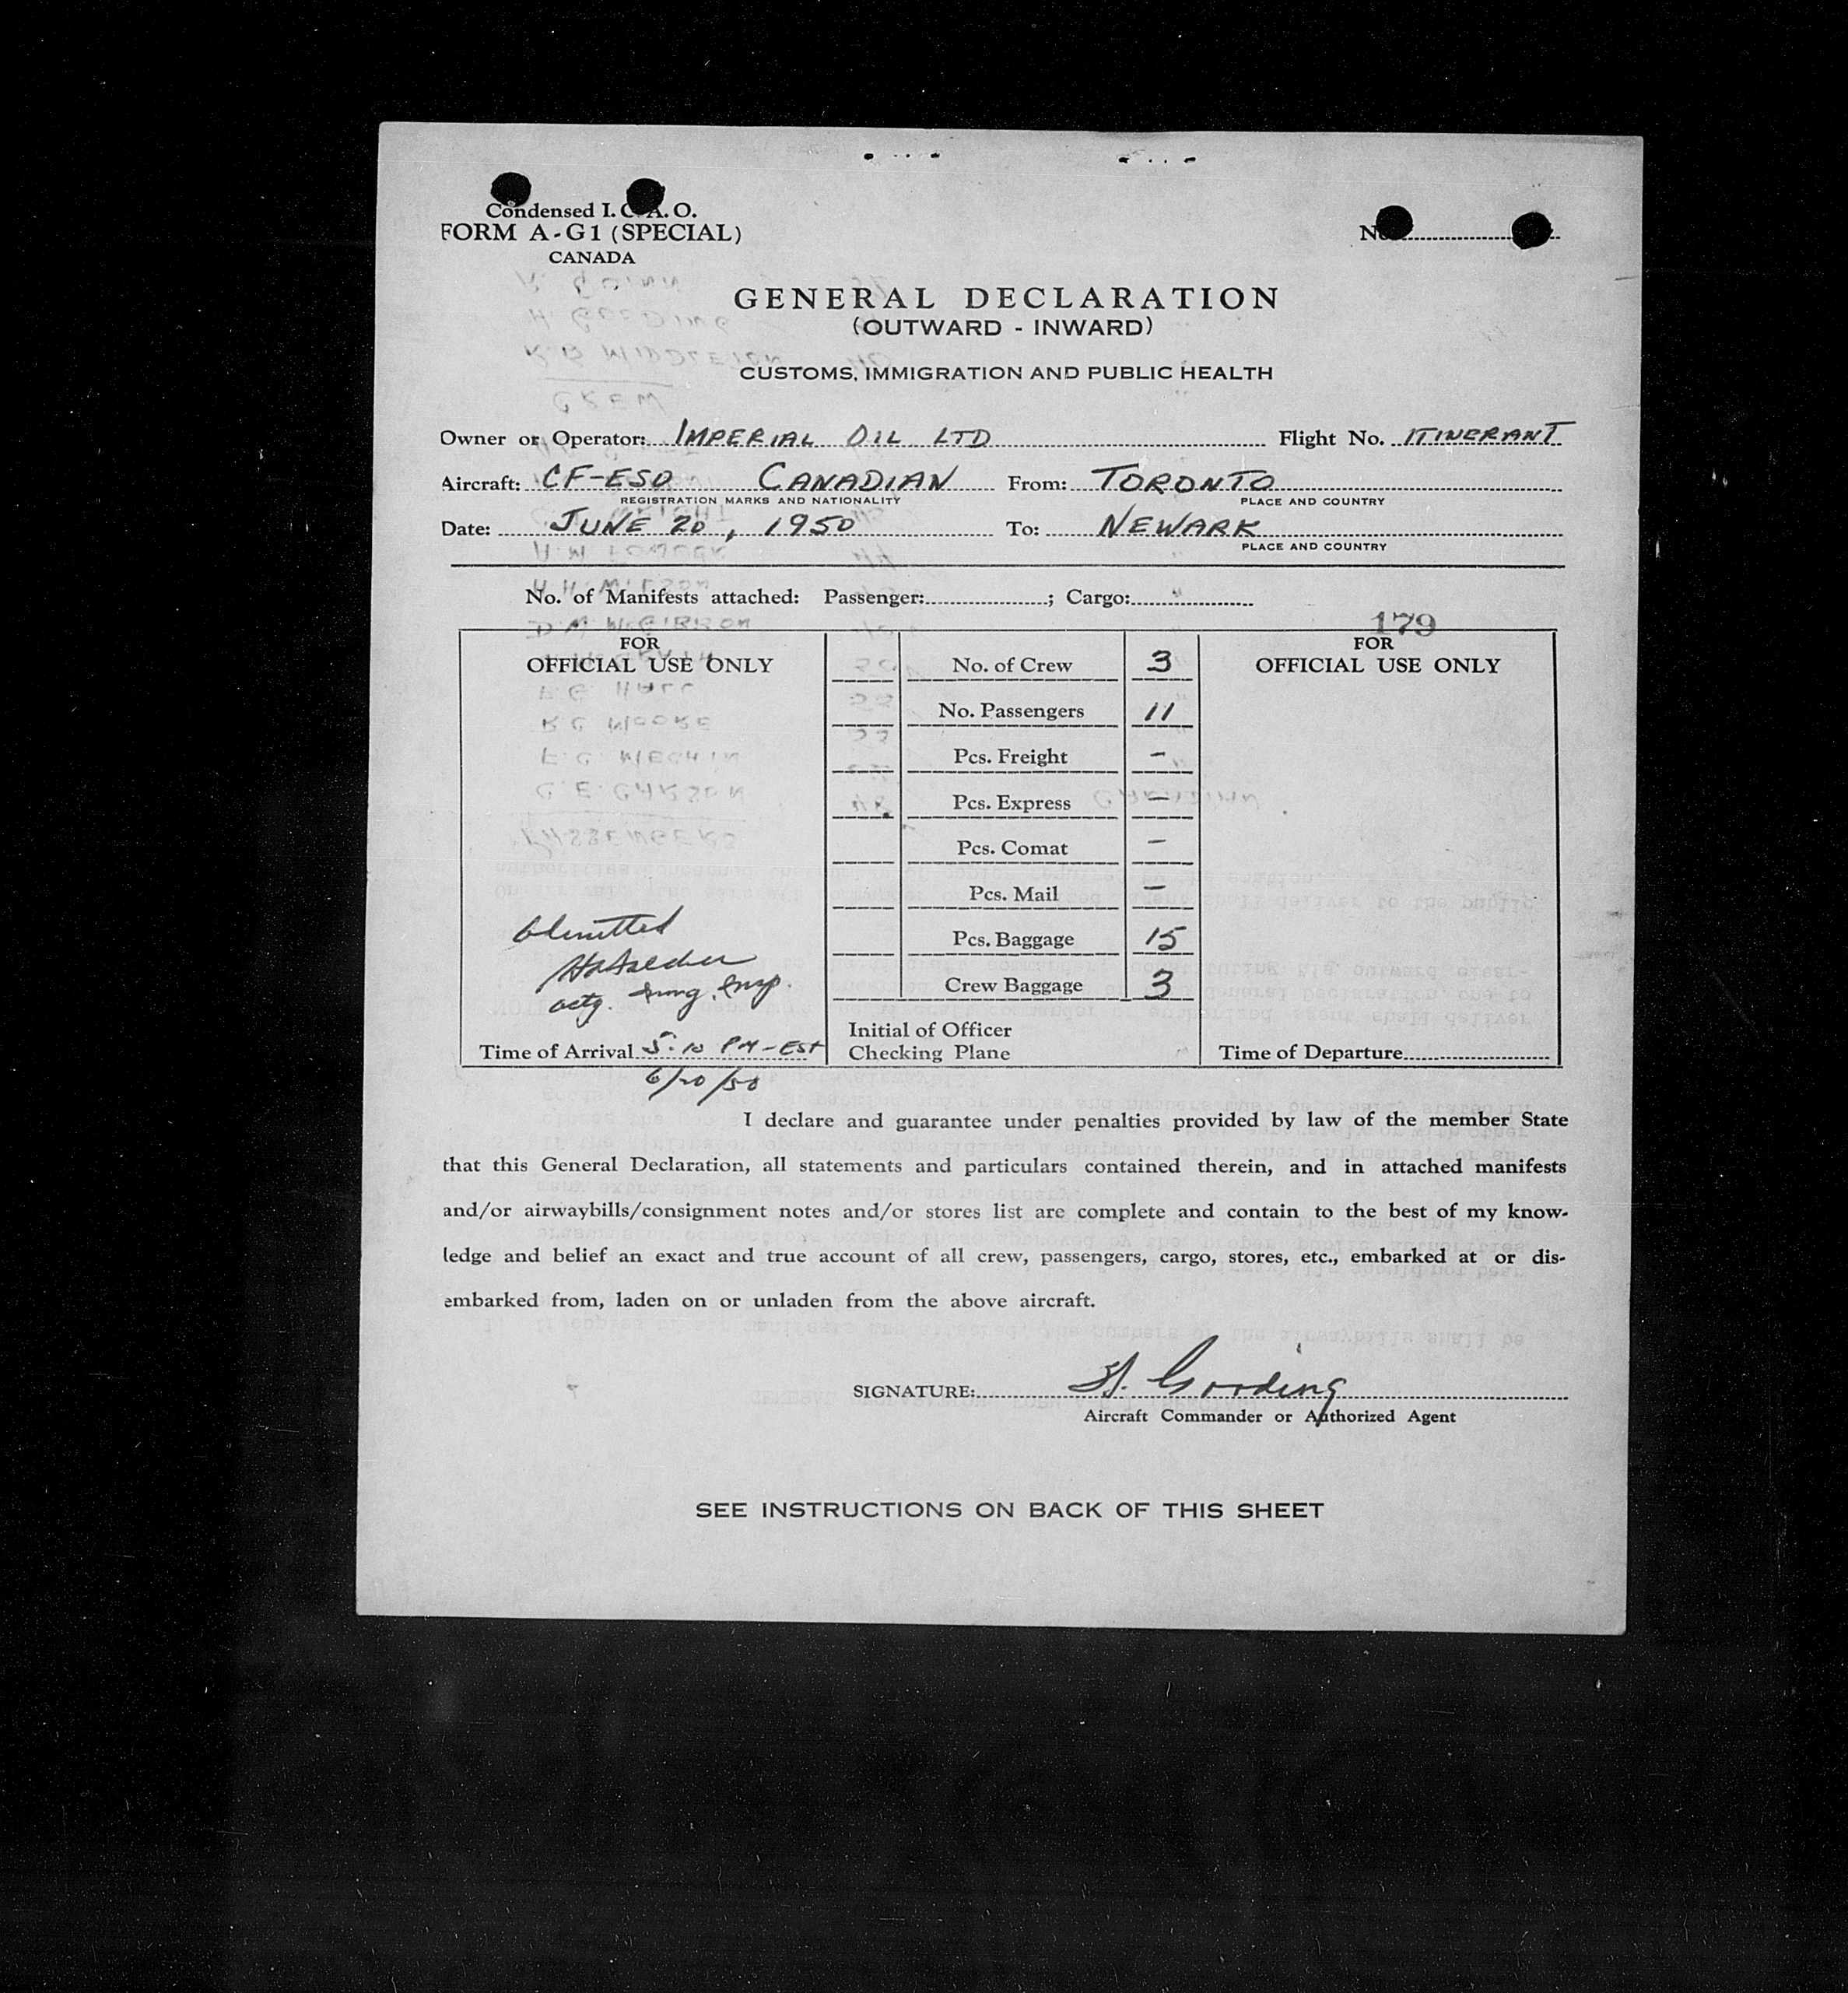 Condensed I. C. A. O.
FORM A-G1 (SPECIAL)
CANADA
No
GENERAL DECLARATION
(OUTWARD - INWARD)
CUSTOMS, IMMIGRATION AND PUBLIC HEALTH
Owner or Operator: IMPERIAL OIL LTD Flight No. ITINERANT
Aircraft: CF-ESO CANADIAN From: TORONTO
REGISTRATION MARKS AND NATIONALITY PLACE AND COUNTRY
Date: JUNE 20, 1950 To: NEWARK
PLACE AND COUNTRY
No. of Manifests attached: Passenger: ; Cargo:
179
FOR
OFFICIAL USE ONLY
No. of Crew 3
No. Passengers 11
Pcs. Freight -
Pcs. Express -
Pcs. Comat -
Pcs. Mail -
Pcs. Baggage 15
Crew Baggage 3
FOR
OFFICIAL USE ONLY
actg. Immg. Insp.
Time of Arrival 5:10 PM-EST
6/20/50
Initial of Officer
Checking Plane
Time of Departure
I declare and guarantee under penalties provided by law of the member State
that this General Declaration, all statements and particulars contained therein, and in attached manifests
and/or airwaybills/consignment notes and/or stores list are complete and contain to the best of my know-
ledge and belief an exact and true account of all crew, passengers, cargo, stores, etc., embarked at or dis-
embarked from, laden on or unladen from the above aircraft.
SIGNATURE: H. Gooding
Aircraft Commander or Authorized Agent
SEE INSTRUCTIONS ON BACK OF THIS SHEET